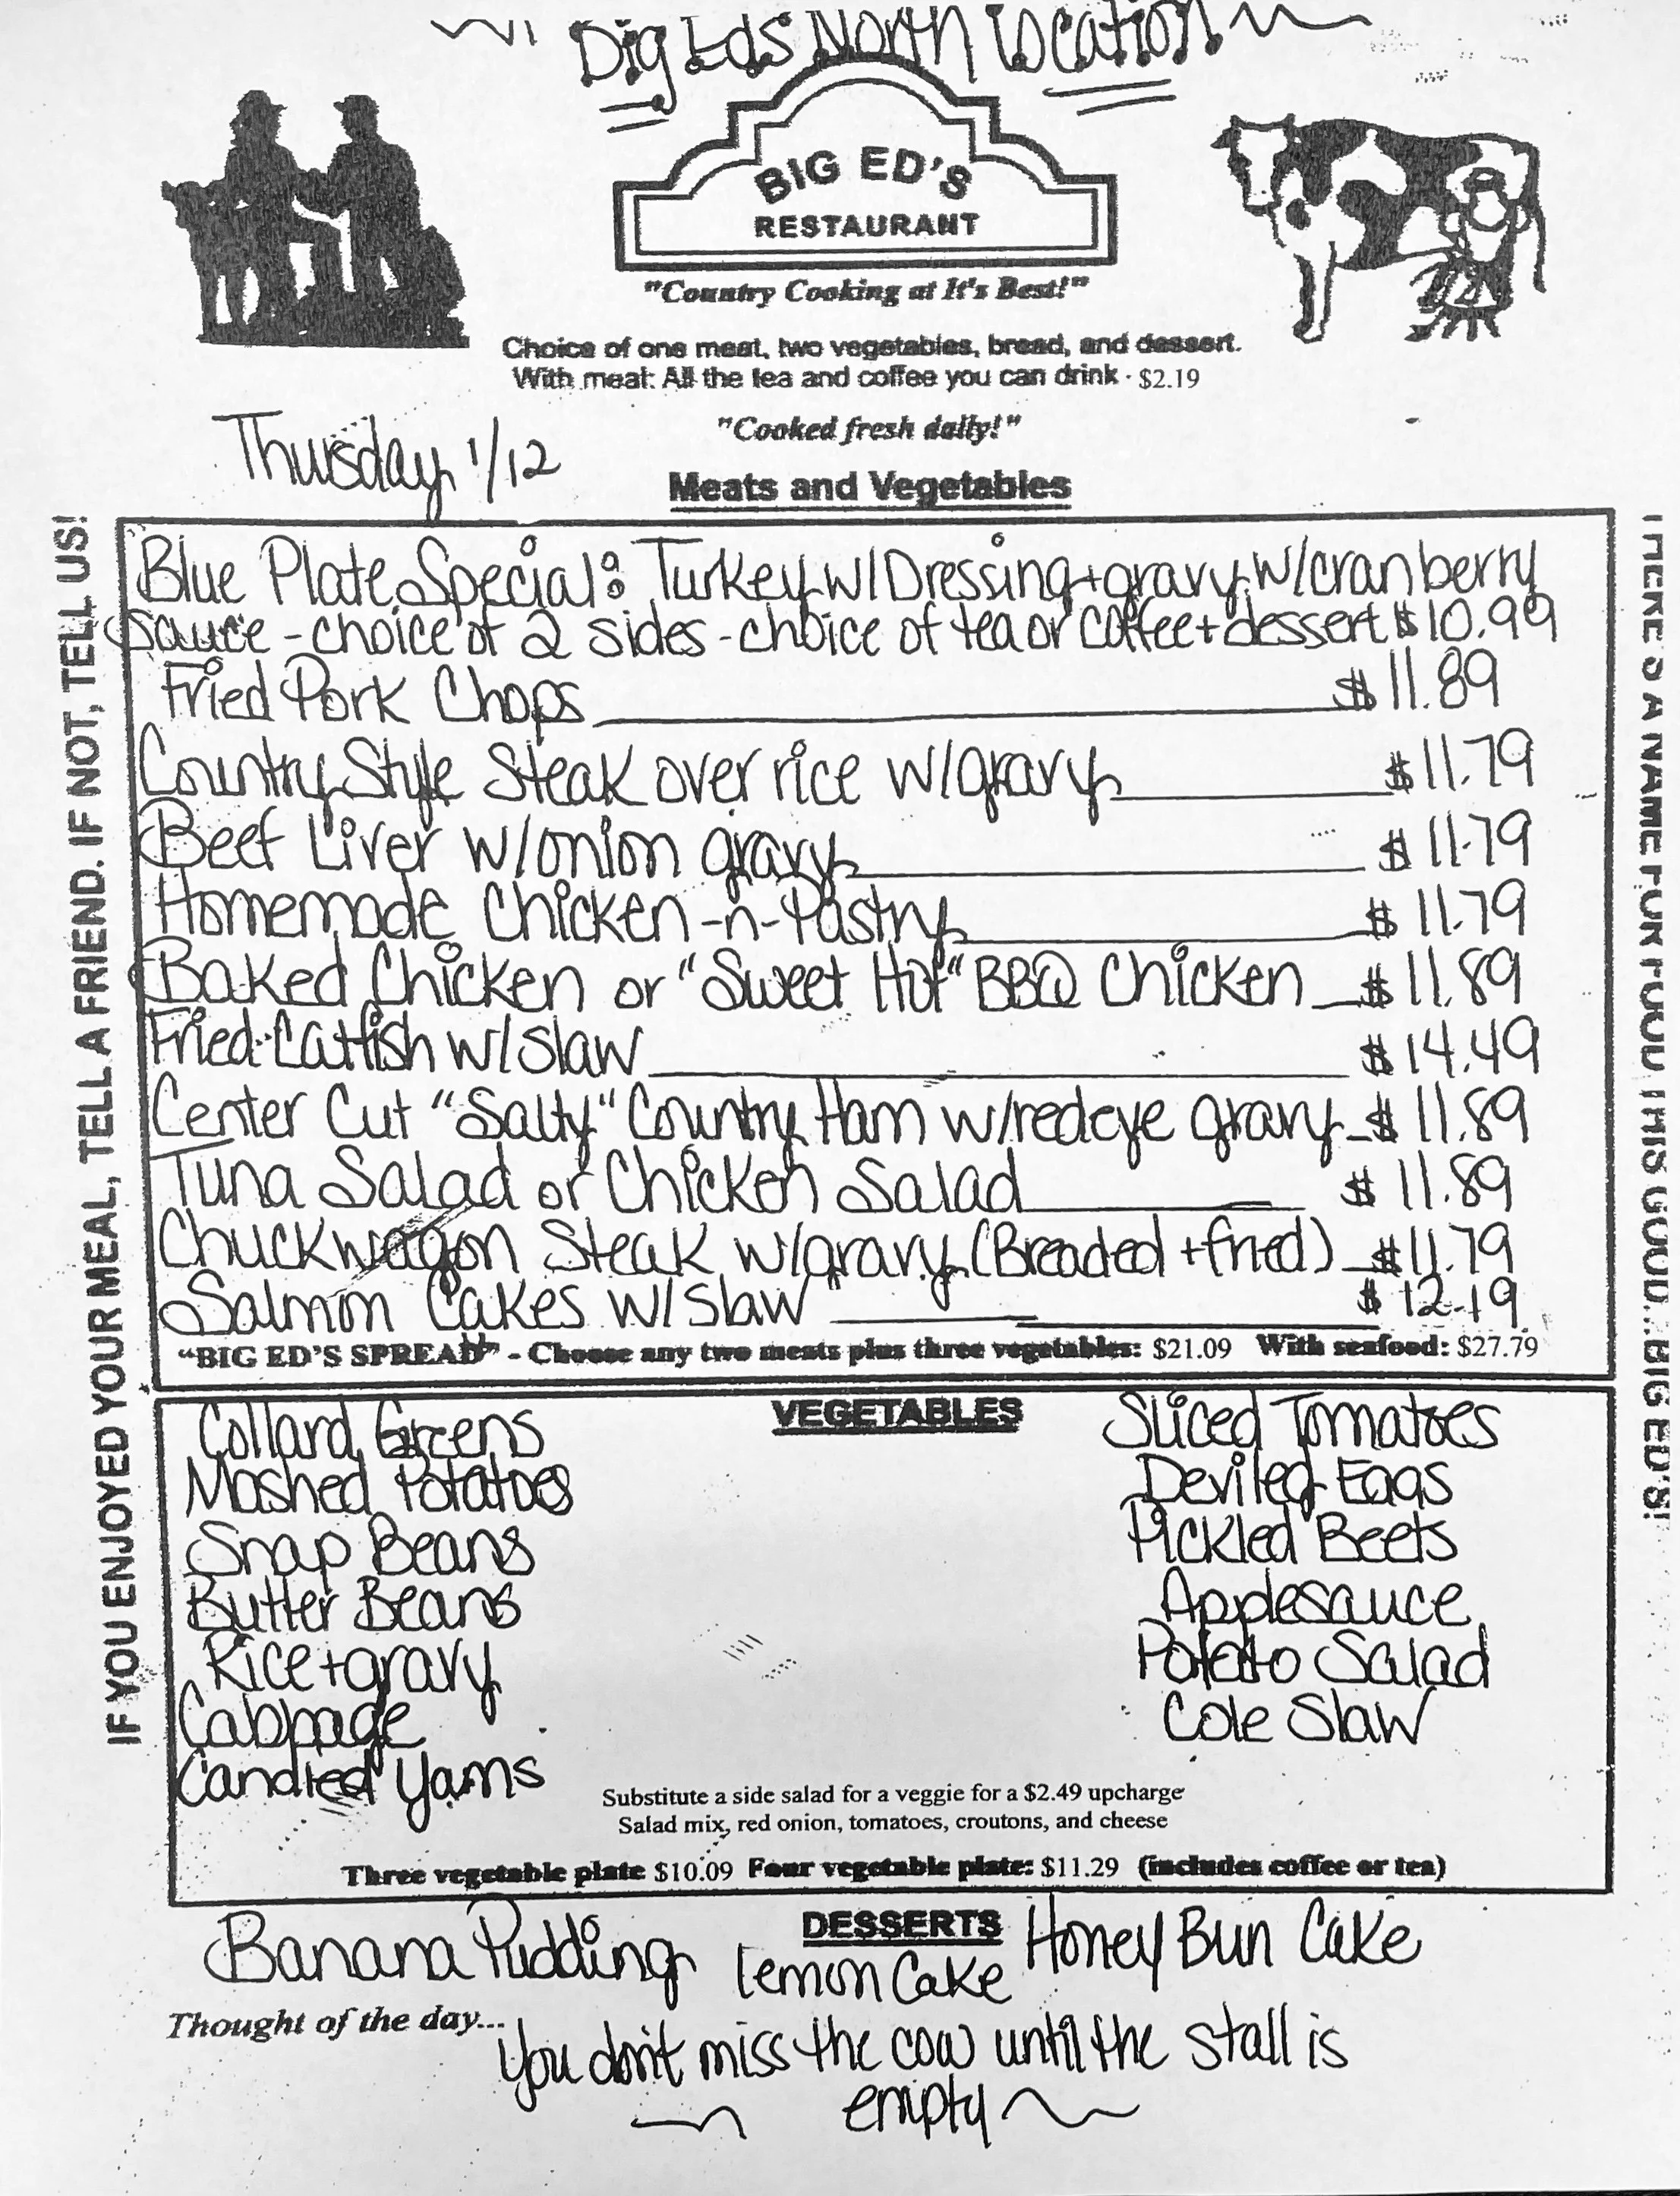 Big Eds North Location
BIG ED'S
RESTAURANT
"Country Cooking at It's Best!"
Choice of one meat, two vegetables, bread, and dessert.
With meal: All the tea and coffee you can drink - $2.19
"Cooked fresh daily!"
Thursday 1/12
Meats and Vegetables
IF YOU ENJOYED YOUR MEAL, TELL A FRIEND. IF NOT, TELL US!
Blue Plate Special: Turkey w/Dressing+gravy w/cranberry
Sauce - choice of 2 sides - choice of tea or coffee + dessert $10.99
Fried Pork Chops $11.89
Country Style Steak over rice w/gravy $11.79
Beef Liver w/onion gravy $11.79
Homemade Chicken-n-Pastry $11.79
Baked Chicken or "Sweet Hot" BBQ Chicken $11.89
Fried Catfish w/slaw $14.49
Center Cut "Salty" Country Ham w/redeye gravy $11.89
Tuna Salad or Chicken Salad $11.89
Chuckwagon Steak w/gravy (Breaded + fried) $11.79
Salmon Cakes w/slaw $12.19
"BIG ED'S SPREAD" - Choose any two meats plus three vegetables: $21.09 With seafood: $27.79
THERE'S A NAME FOR FOOD THIS GOOD...BIG ED'S!
VEGETABLES
Collard Greens
Mashed Potatoes
Snap Beans
Butter Beans
Rice + gravy
Cabbage
Candied Yams
Sliced Tomatoes
Deviled Eggs
Pickled Beets
Applesauce
Potato Salad
Cole Slaw
Substitute a side salad for a veggie for a $2.49 upcharge
Salad mix, red onion, tomatoes, croutons, and cheese
Three vegetable plate $10.09 Four vegetable plate: $11.29 (includes coffee or tea)
DESSERTS
Banana Pudding Lemon Cake Honey Bun Cake
Thought of the day...
You don't miss the cow until the stall is
empty